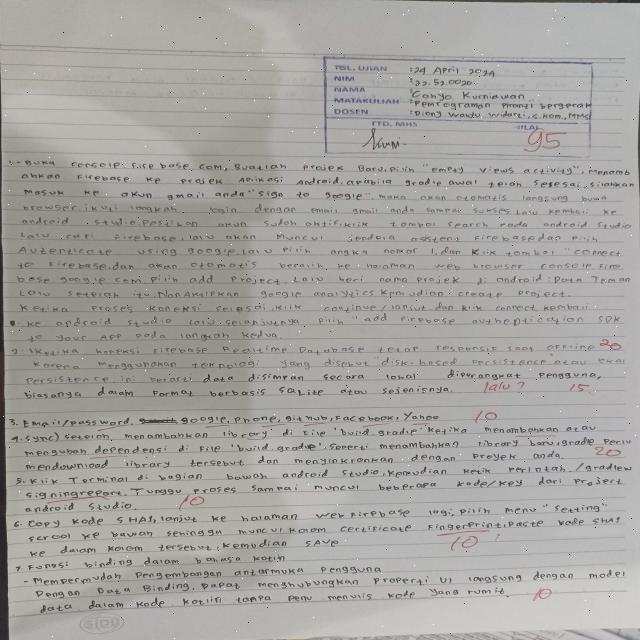 TGL. UJIAN : 24 April 2024
NIM : 22.52.0020
NAMA : Cahyo Kurniawan
MATAKULIAH : Pemrograman Piranti bergerak
DOSEN : Diony Wahyu Widarti, S.Kom, MMSI
TTD. MHS NILAI
95
1.- Buka console.firebase.com, Buatlah projek Baru, Pilih "empty views activity", Menamb
ahkan Firebase ke projek Aplikasi Android. apabila gradle awal telah selesai, silahkan
masuk ke akun gmail anda "sign to google" maka akan otomatis langsung buka
browser. ikuti langkah login dengan email gmail anda sampai sukses, lalu kembali ke
android studio. Pastikan akun sudah aktif. klik tombol search pada android studio
Lalu cari Firebase. lalu akan Muncul jendela assistens firebase dan pilih
Autenticate using google. Lalu Pilih angka nomor 1. dan klik tombol "connect
to firebase. dan akan otomatis beralih ke halaman web browser console fire
base google.com. pilih add project. Lalu beri nama projek di android : Data Teman
Lalu setelah itu, NonAktifkan google analytics. Kemudian create project.
Ketika proses koneksi selesai, klik continue/lanjut dan klik connect kembali
ke android studio lalu selanjutnya pilih "add firebase authentication SDK
to your App pada langkah kedua.
20
2. Ketika koneksi Firebase Realtime Database tetap responsif saat offline
Karena menggunakan teknologi yang disebut "disk-based persistence" atau
Persistence ini berarti data disimpan secara lokal diperangkat Pengguna,
biasanya dalam format berbasis SQLite atau sejenisnya. lalu? 15
3. Email/password, google, Phone, github, Facebook, Yahoo 10
4. Sync) setelah menambahkan library di file 'build.gradle' ketika menambahkan atau
mengubah dependensi di File 'build.gradle', seperti menambahkan library baru, gradle perlu
mendownload library tersebut dan menyinkronkan dengan Proyek anda. 20
5. Klik Terminal di bagian bawah android studio, Kemudian ketik perintah ./gradlew
signingreport. Tunggu proses sampai muncul beberapa kode/key dari Project
android studio. 10
6. Copy kode SHA1, lanjut ke halaman web firebase lagi, pilih menu "setting"
scrool ke bawah sehingga muncul kolom certificate Fingerprint. Paste kode SHA1
ke dalam kolom tersebut, kemudian SAVE 10
7. Fungsi binding dalam bahasa kotlin
- Mempermudah Pengembangan antarmuka Pengguna
Dengan Data Binding, Dapat menghubungkan Properti UI langsung dengan model
data dalam kode kotlin tanpa perlu menulis kode yang rumit. 10
SIDU